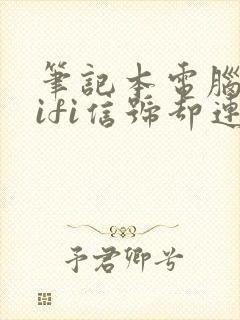 筆記本電腦
ifi信號卻連
予君卿兮